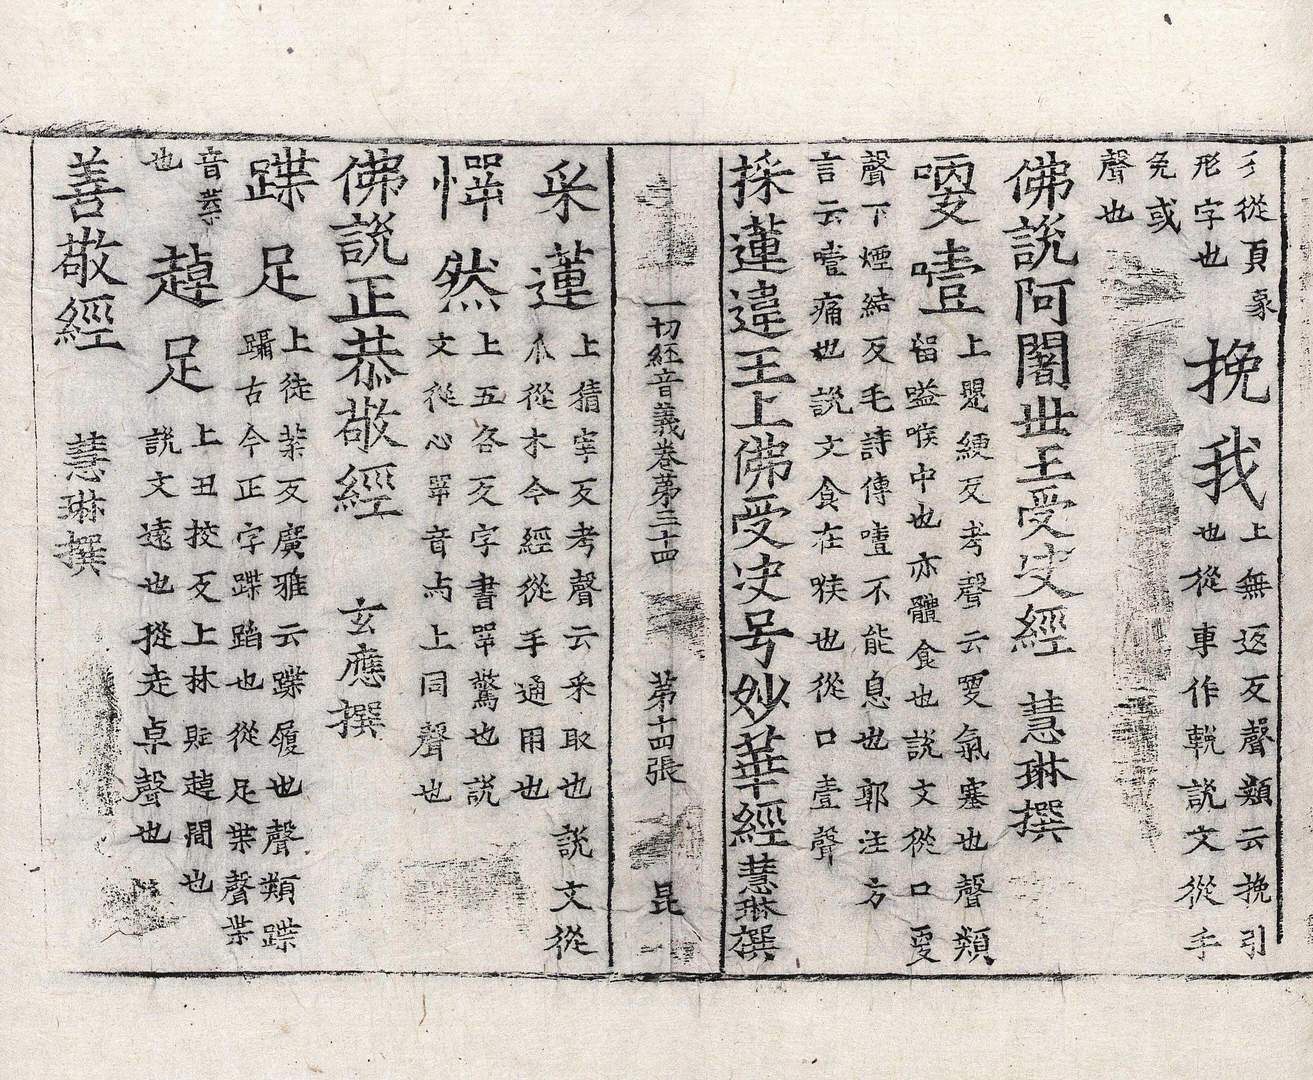 彡從頁彖
形字也
挽我
上無返反聲類云挽引
也從車作輓說文從手
免或
聲也
佛說阿闍丗王受决經 慧琳撰
哽噎
上綆反考聲云哽氣塞也聲類
嗌喉中也亦體食也說文從口更
聲下煙結反毛詩傳噎不能息也郭注方
言云噎痛也說文食在喉也從口壹聲
採蓮違王上佛受决号妙華經 慧琳撰
一切經音義卷第三十四 第十四張 昆
采蓮
上猜宰反考聲云采取也說文從
爪從木今經從手通用也
愕然
上五各反字書咢驚也說
文從心咢音与上同聲也
佛說正恭敬經 玄應撰
蹀足
上徒葉反廣雅云蹀履也聲類蹀
躡古今正字蹀蹈也從足枼聲枼
音葉
也
趠足
上丑挍反上林賦趠間也
說文遠也從走卓聲也
善敬經 慧琳撰